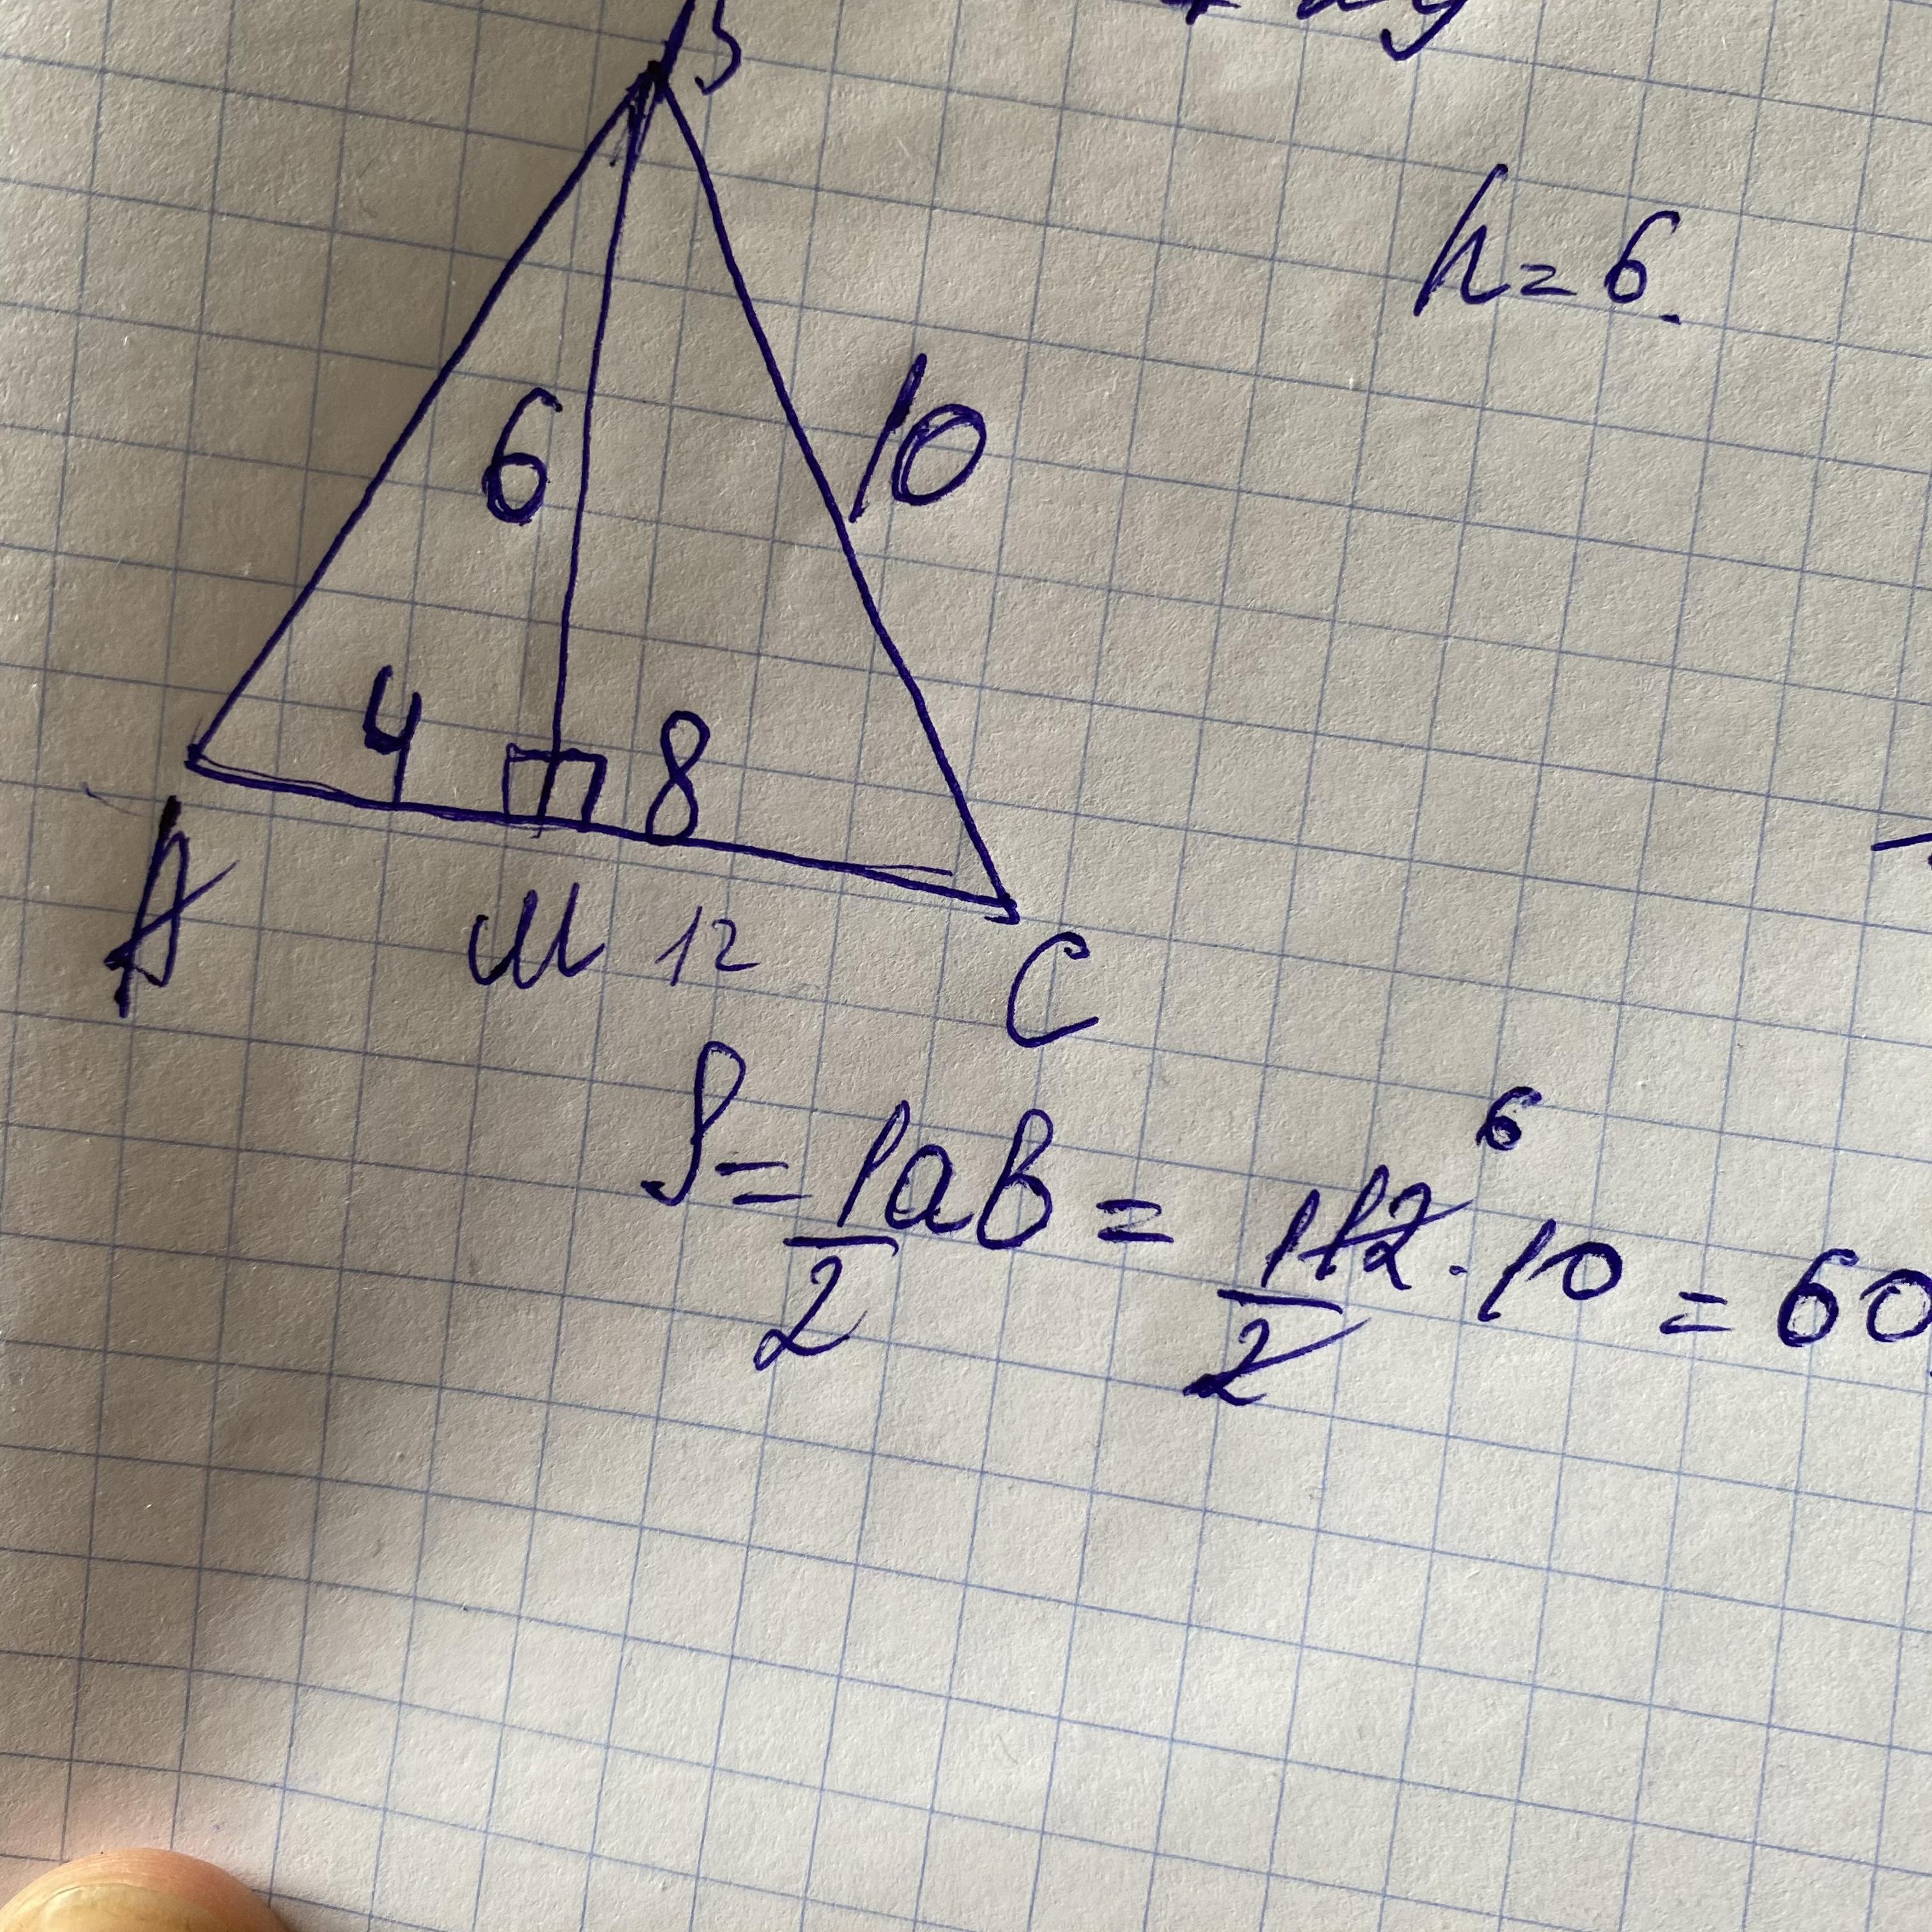 B
h=6.
6
10
4
8
A
M
12
C
S= 1/2 ab = 1/2 12 6 · 10 = 60